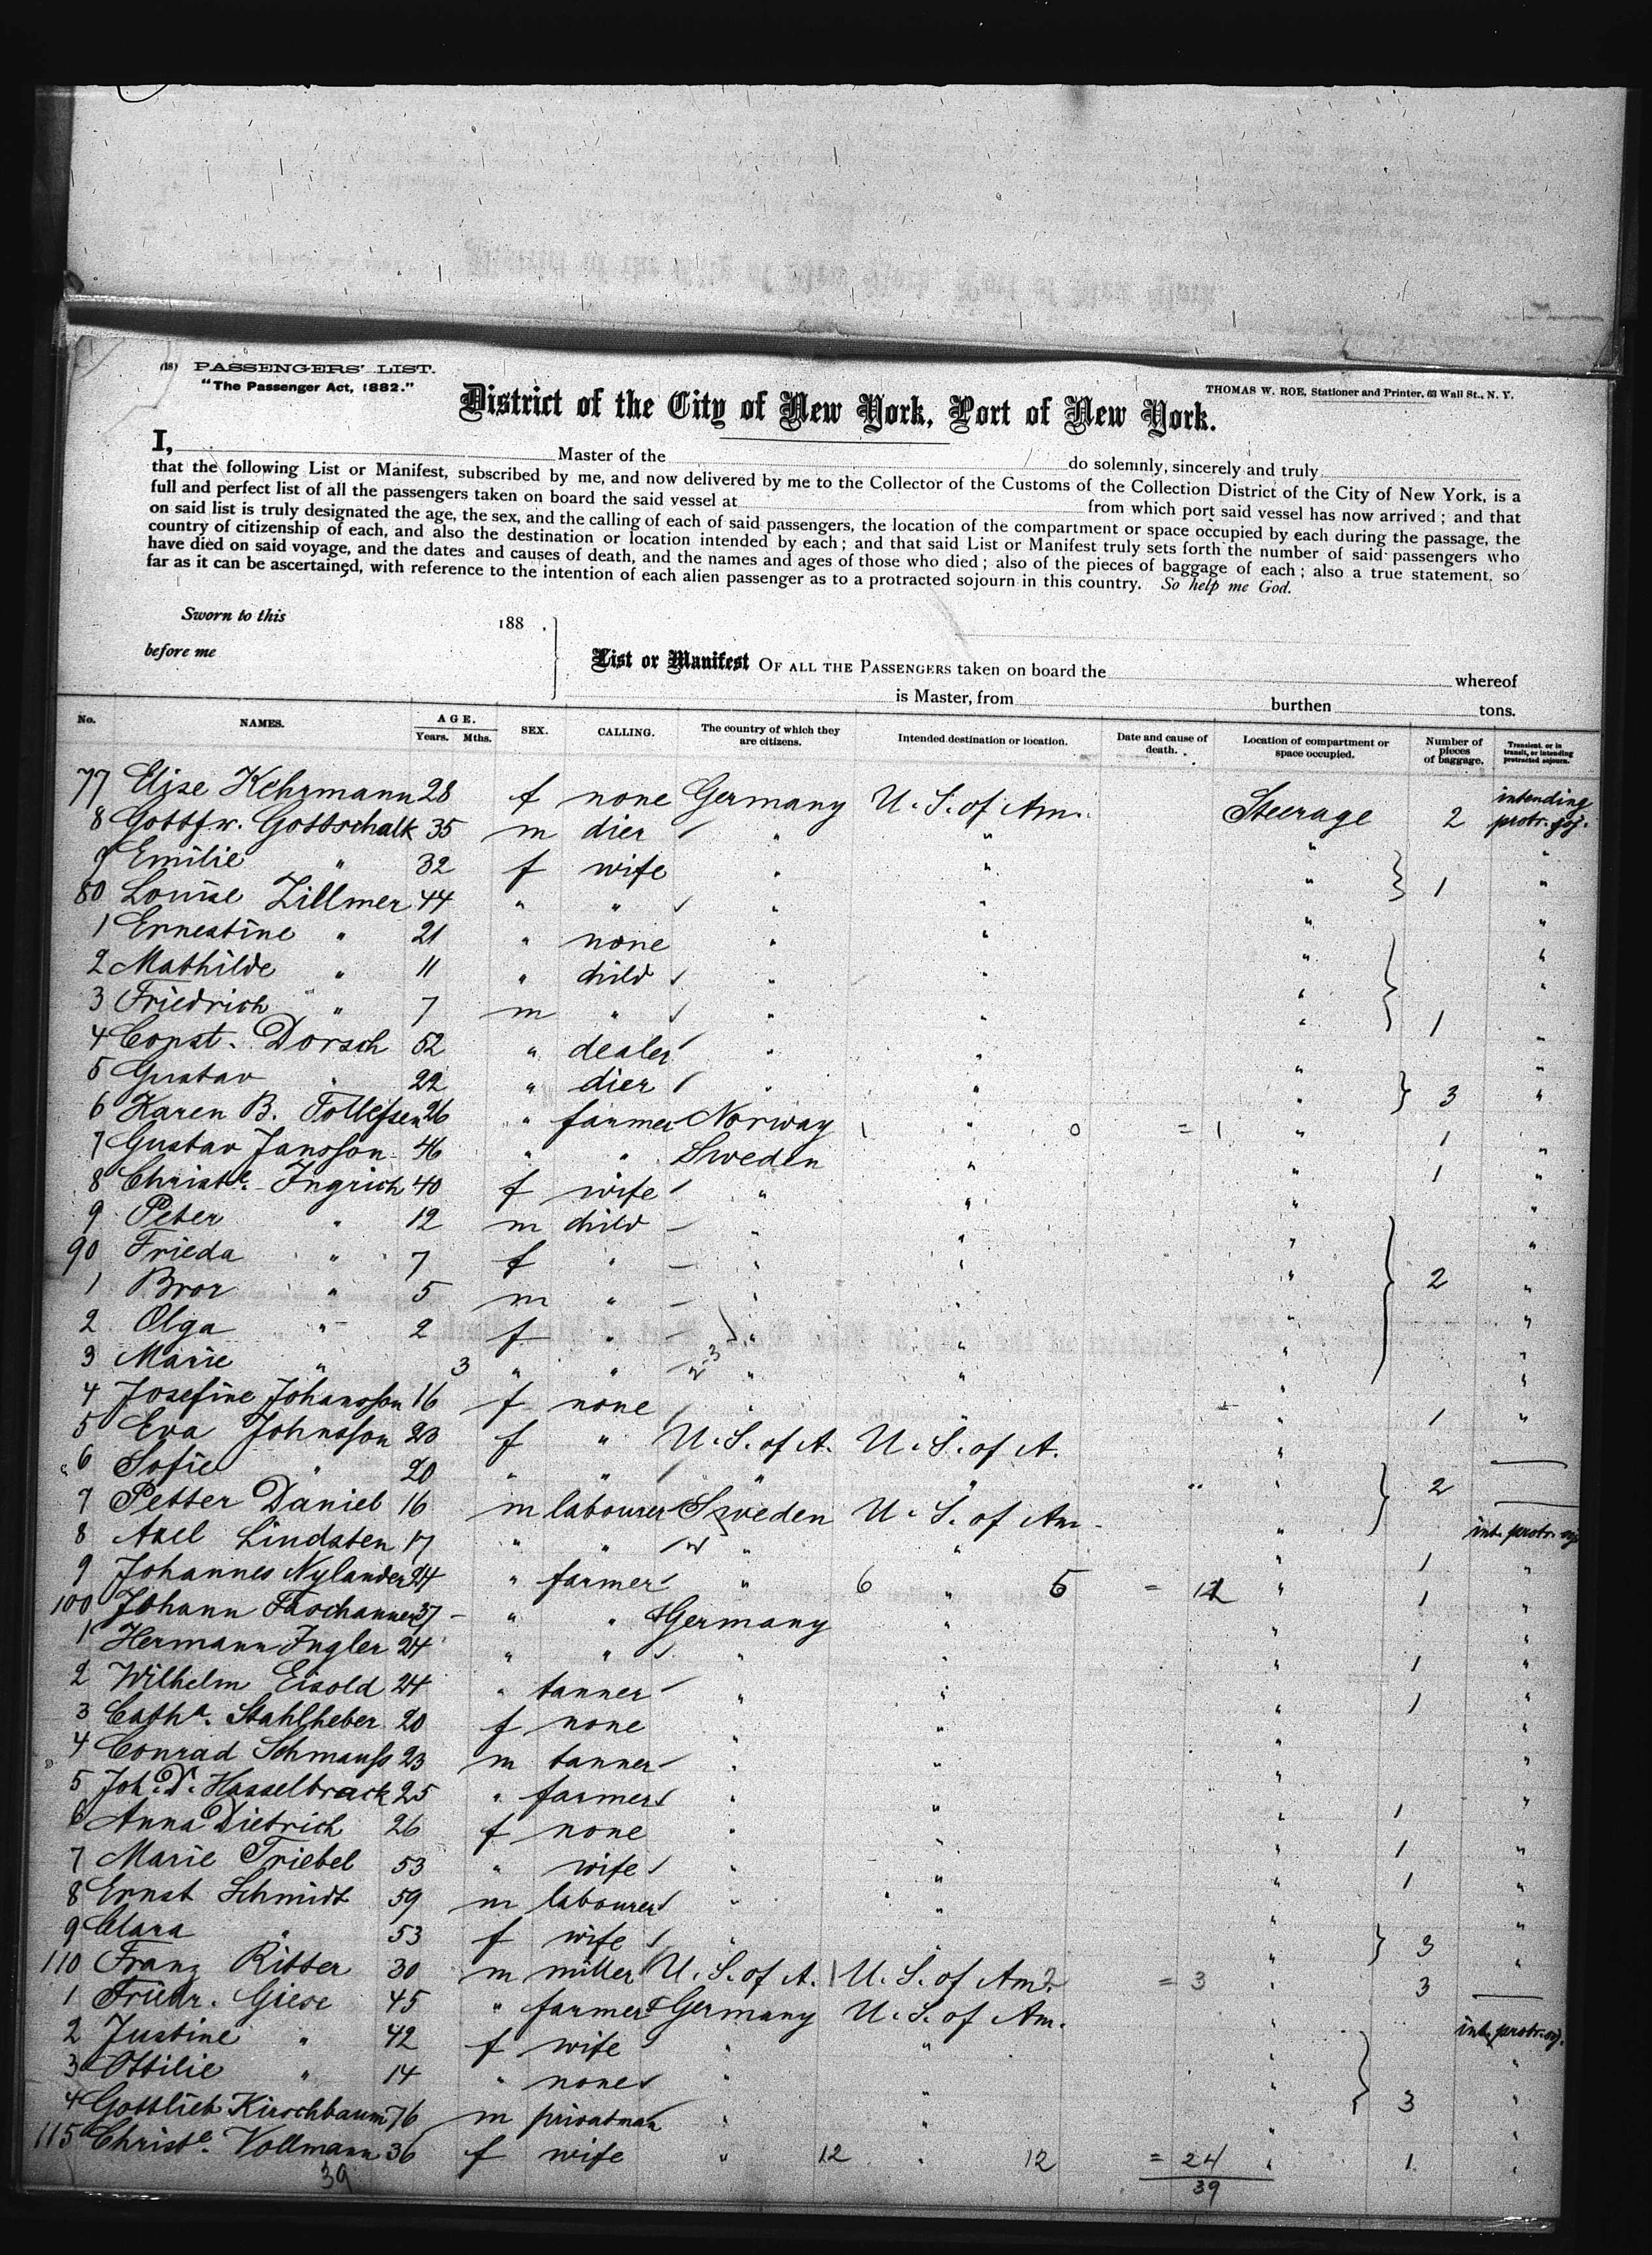 (18) PASSENGERS' LIST.
"The Passenger Act, 1882."
THOMAS W. ROE, Stationer and Printer, 63 Wall St., N. Y.
District of the City of New York, Port of New York.
I, Master of the do solemnly, sincerely and truly
that the following List or Manifest, subscribed by me, and now delivered by me to the Collector of the Customs of the Collection District of the City of New York, is a
full and perfect list of all the passengers taken on board the said vessel at from which port said vessel has now arrived; and that
on said list is truly designated the age, the sex, and the calling of each of said passengers, the location of the compartment or space occupied by each during the passage, the
country of citizenship of each, and also the destination or location intended by each; and that said List or Manifest truly sets forth the number of said passengers who
have died on said voyage, and the dates and causes of death, and the names and ages of those who died; also of the pieces of baggage of each; also a true statement, so
far as it can be ascertained, with reference to the intention of each alien passenger as to a protracted sojourn in this country. So help me God.
Sworn to this 188 .
before me
List or Manifest OF ALL THE PASSENGERS taken on board the whereof
is Master, from burthen tons.
No. NAMES. AGE. Years. Mths. SEX. CALLING. The country of which they are citizens. Intended destination or location. Date and cause of death. Location of compartment or space occupied. Number of pieces of baggage. Transient, or in transit, or intending protracted sojourn.
77 Elise Kehrmann 28 f none Germany U. S. of Am. Steerage 2 intending protr. soj.
8 Gottfr. Gottschalk 35 m dier " " " "
9 Emilie " 32 f wife " " " 1 "
80 Louise Zillmer 44 " " " " " "
1 Ernestine " 21 " none " " " "
2 Mathilde " 11 " child " " " "
3 Friedrich " 7 m " " " " 1
4 Const. Dorsch 52 " dealer " " " "
5 Gustav " 22 " dier " " " 3 "
6 Karen B. Tollefsen 26 " farmer Norway 1 " 0 = 1 " 1 "
7 Gustav Jansson 46 " " Sweden " " 1 "
8 Christe. Ingrich 40 f wife " " " "
9 Peter " 12 m child " " " "
90 Frieda " 7 f " " " " 2 "
1 Bror " 5 m " " " " "
2 Olga " 2 f " " " " "
3 Marie " 3 " " " " " "
4 Josefine Johansson 16 f none " " " 1 "
5 Eva Johnsson 23 f " U. S. of A. U. S. of A. "
6 Sofie " 20 " " " " " 2
7 Petter Daniel 16 m labourer Sweden U. S. of Am. " int. protr. soj.
8 Axel Lindsten 17 " " " " " 1 "
9 Johannes Nylander 24 " farmer " 6 " 5 = " 1 "
100 Johann 37 " " Germany " " "
1 Hermann Ingler 24 " " " " " 1 "
2 Wilhelm Eisold 24 " tanner " " " 1 "
3 Catha. Stahlheber 20 f none " " " "
4 Conrad Schmauss 23 m tanner " " " "
5 Joh. D. Hasselbrack 25 " farmer " " " 1 "
6 Anna Dietrich 26 f none " " " 1 "
7 Marie Triebel 53 " wife " " " 1 "
8 Ernst Schmidt 59 m labourer " " " "
9 Clara " 53 f wife " " " 3 "
110 Franz Ritter 30 m miller U. S. of A. 1 U. S. of Am. 2 = 3 " 3
1 Friedr. Giese 45 " farmer Germany U. S. of Am. " int. protr. soj.
2 Justine " 42 f wife " " " "
3 Ottilie " 14 " none " " " 3 "
4 Gottlieb Kirschbaum 76 m privatman " " " "
115 Christe. Vollmann 36 f wife " 12 " 12 = 24 " 1 "
39 39